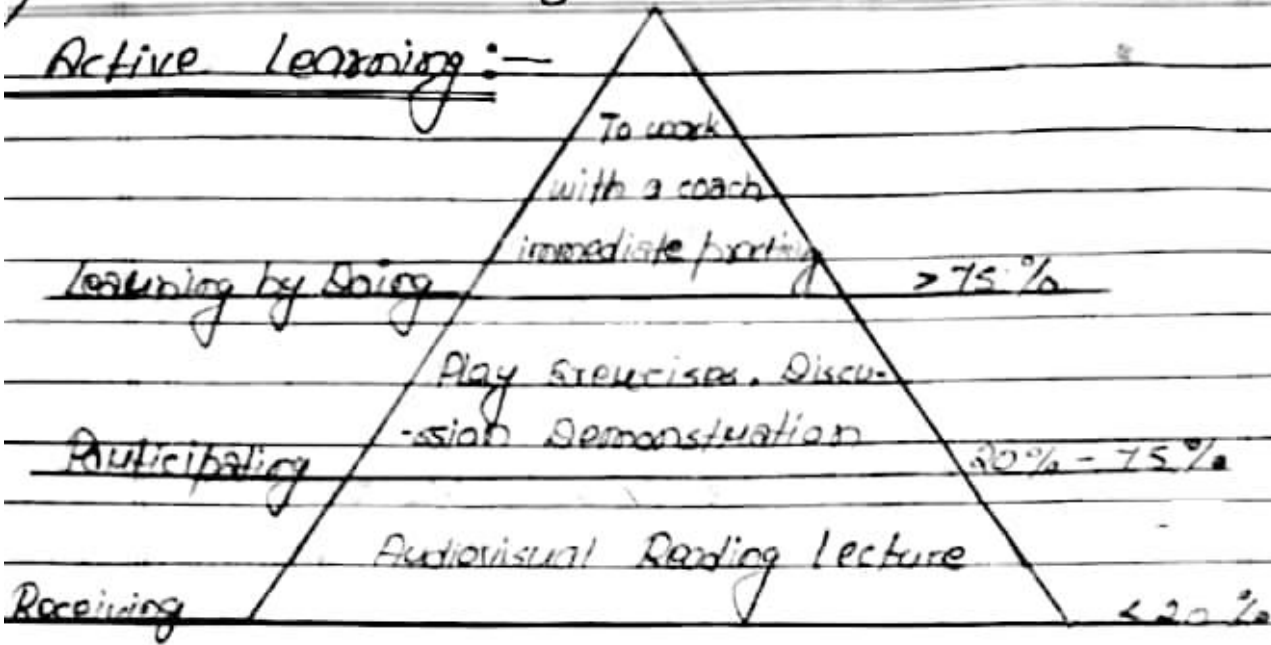 Active Learning :-
To work
with a coach
immediate practicing
Learning by Doing
>75%
Play Exercises. Discu-
-ssion Demonstration
Participating
20% - 75%
Audiovisual Reading lecture
Receiving
<20%